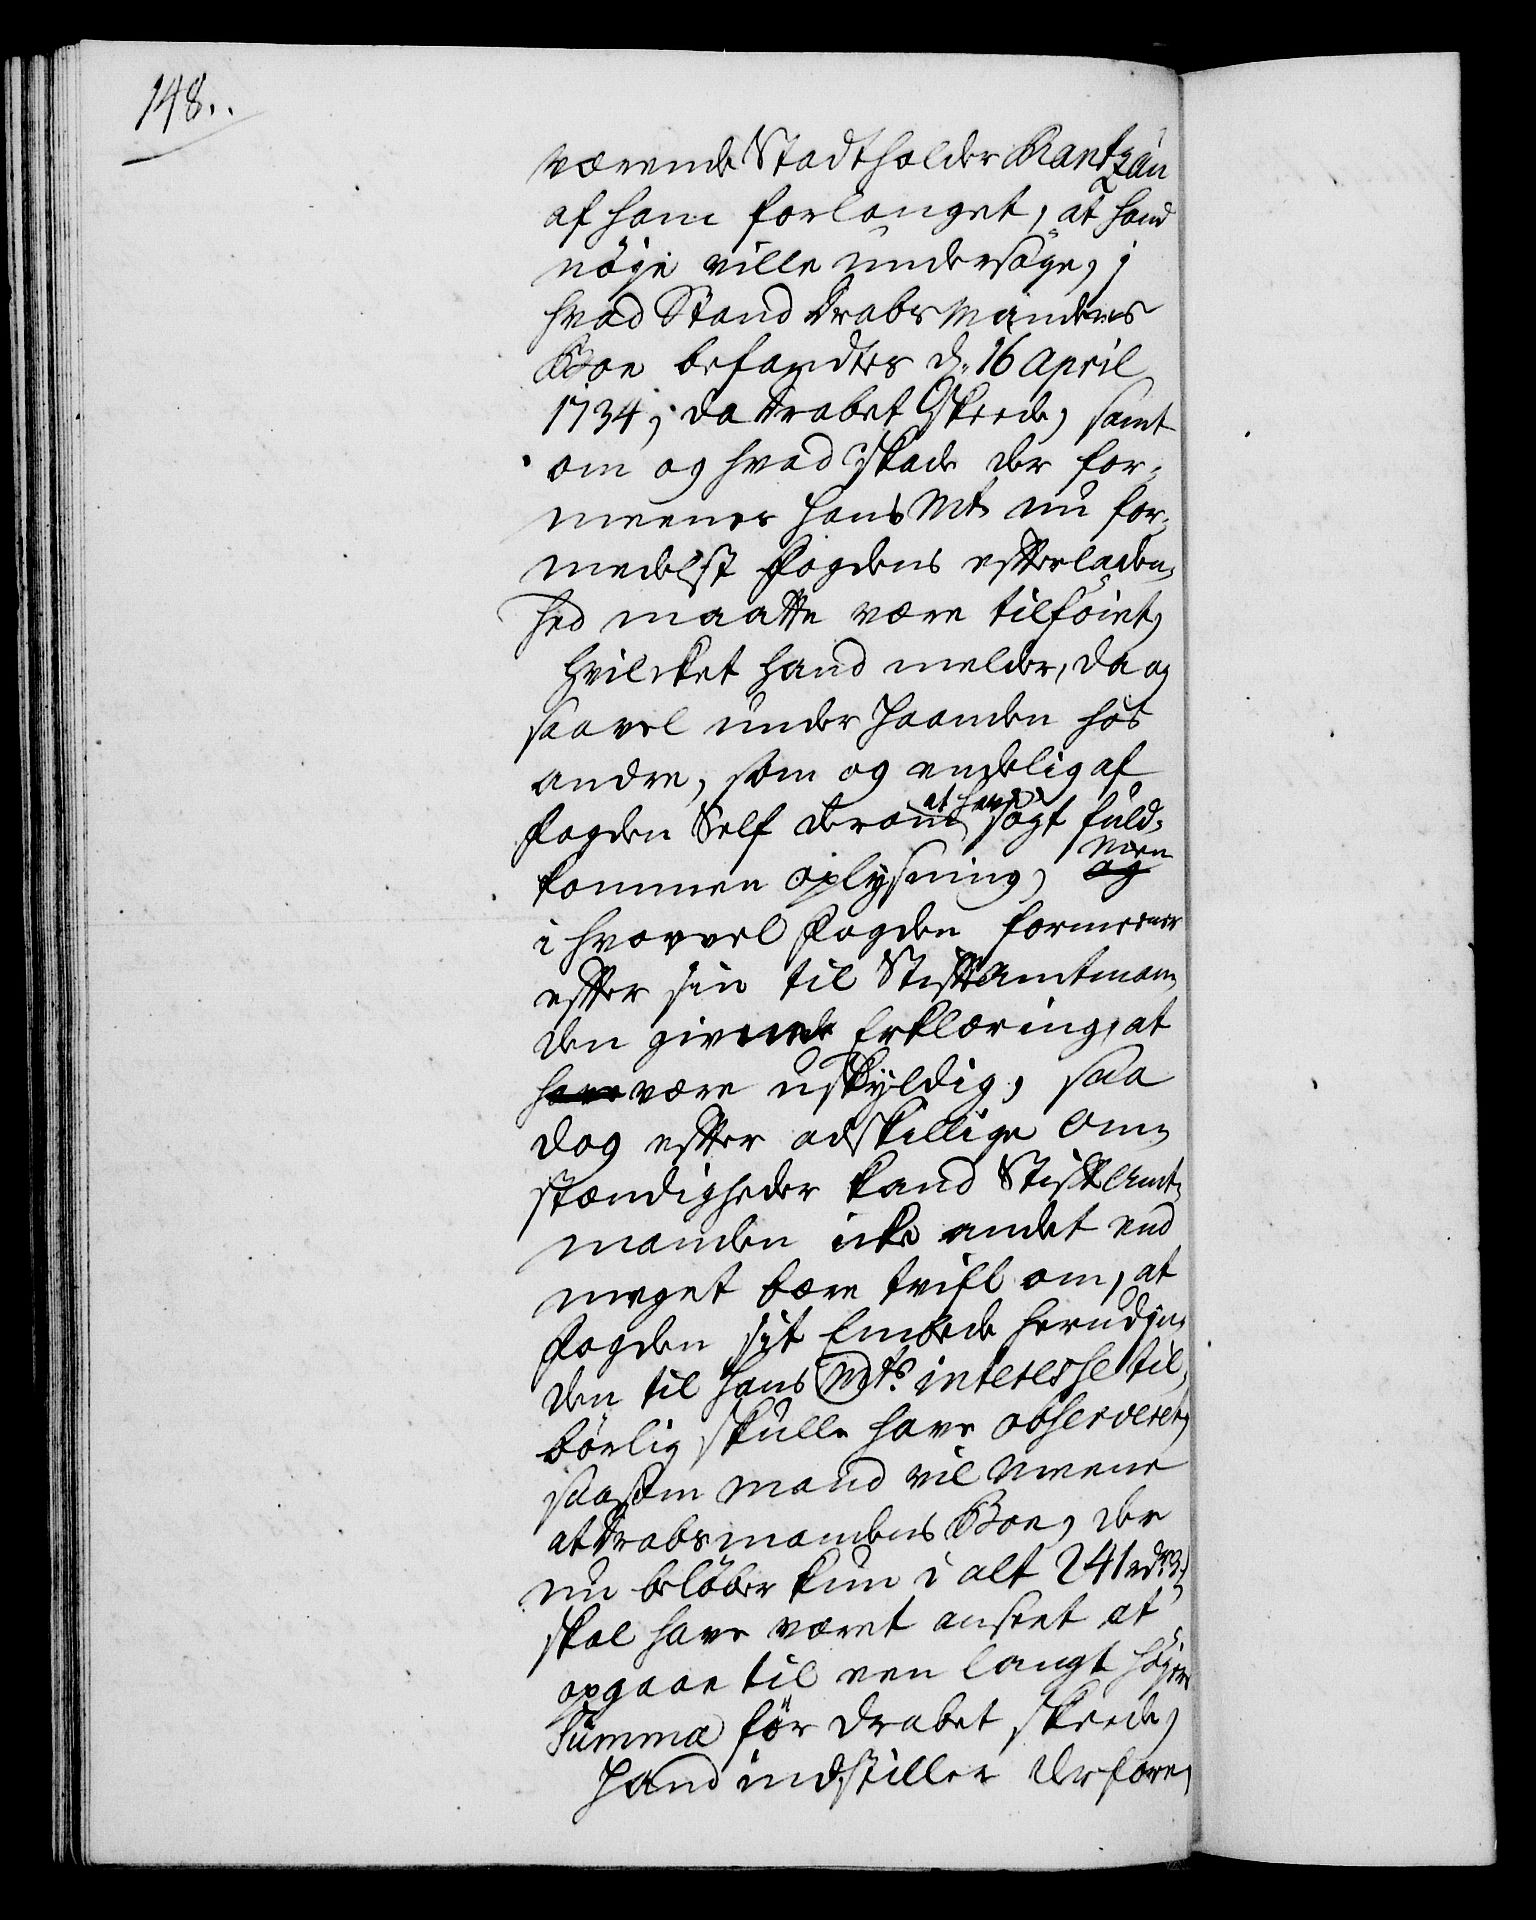 148..
værende Stadtholder Rantzau
af ham forlanget, at hand
nöje ville undersöge, i
hvad Stand Drabsmandens
Boe befandtes d. 16 April
1734, da Drabet Skeede, samt
om og hvad Skade der for-
meener hans Mt. nu for-
medelst Fogdens efterladen-
hed maatte være tilföiet,
Hvilcket hand melder, da og
saavel under Haanden hos
andre, som og endelig af
Fogden Self derom at have sögt fuld-
kommen oplysning, men
i hvorvel Fogden formeener
efter sin til Stiftamtman-
den givende Erklæring, at
være uskyldig, saa
dog efter adskillige Om-
stændigheder kand Stiftamt-
manden icke andet end
meget bære tvifl om, at
Fogden sit Embede herudin-
den til hans Mts. interesse til-
börlig skulle have observeret,
saasom mand vil meene
at Drabsmandens Boe, der
nu beløber kun i alt 241 rdr. 3
skal have været anseet at
opgaae til een langt höjere
Summa för Drabet skeede,
Hand indstiller derfore,